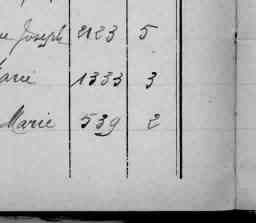 Joseph 2123 5
arie 1333 3
Marie 539 2